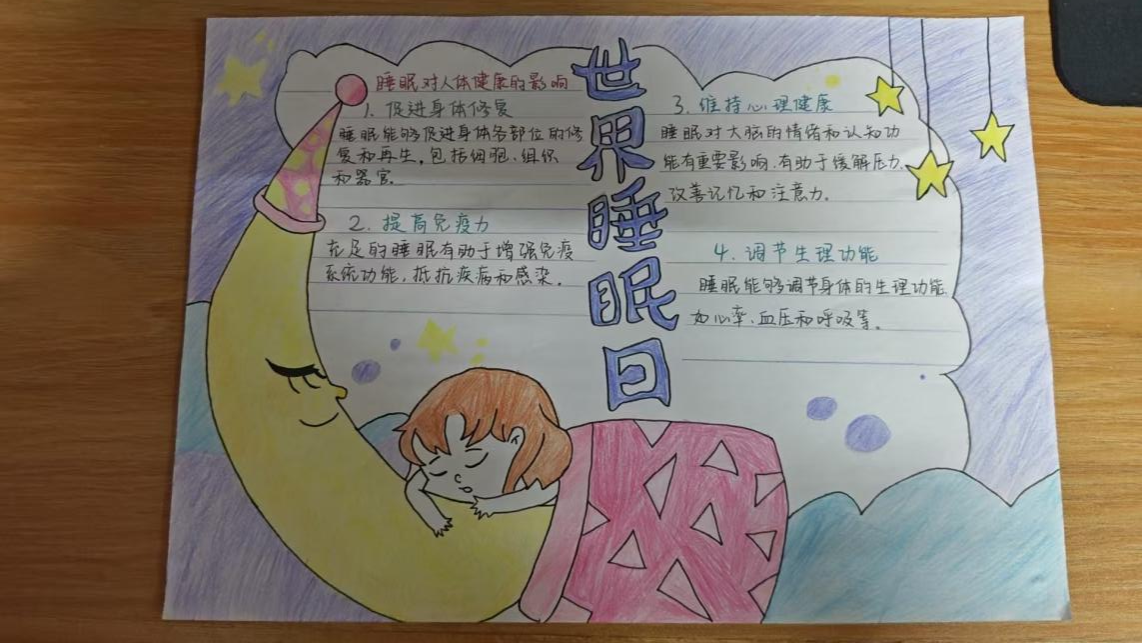 世界睡眠日
睡眠对人体健康的影响
1. 促进身体修复
睡眠能够促进身体各部位的修
复和再生，包括细胞、组织
和器官。
2. 提高免疫力
充足的睡眠有助于增强免疫
系统功能，抵抗疾病和感染。
3. 维持心理健康
睡眠对大脑的情绪和认知功
能有重要影响，有助于缓解压力、
改善记忆和注意力。
4. 调节生理功能
睡眠能够调节身体的生理功能，
如心率、血压和呼吸等。